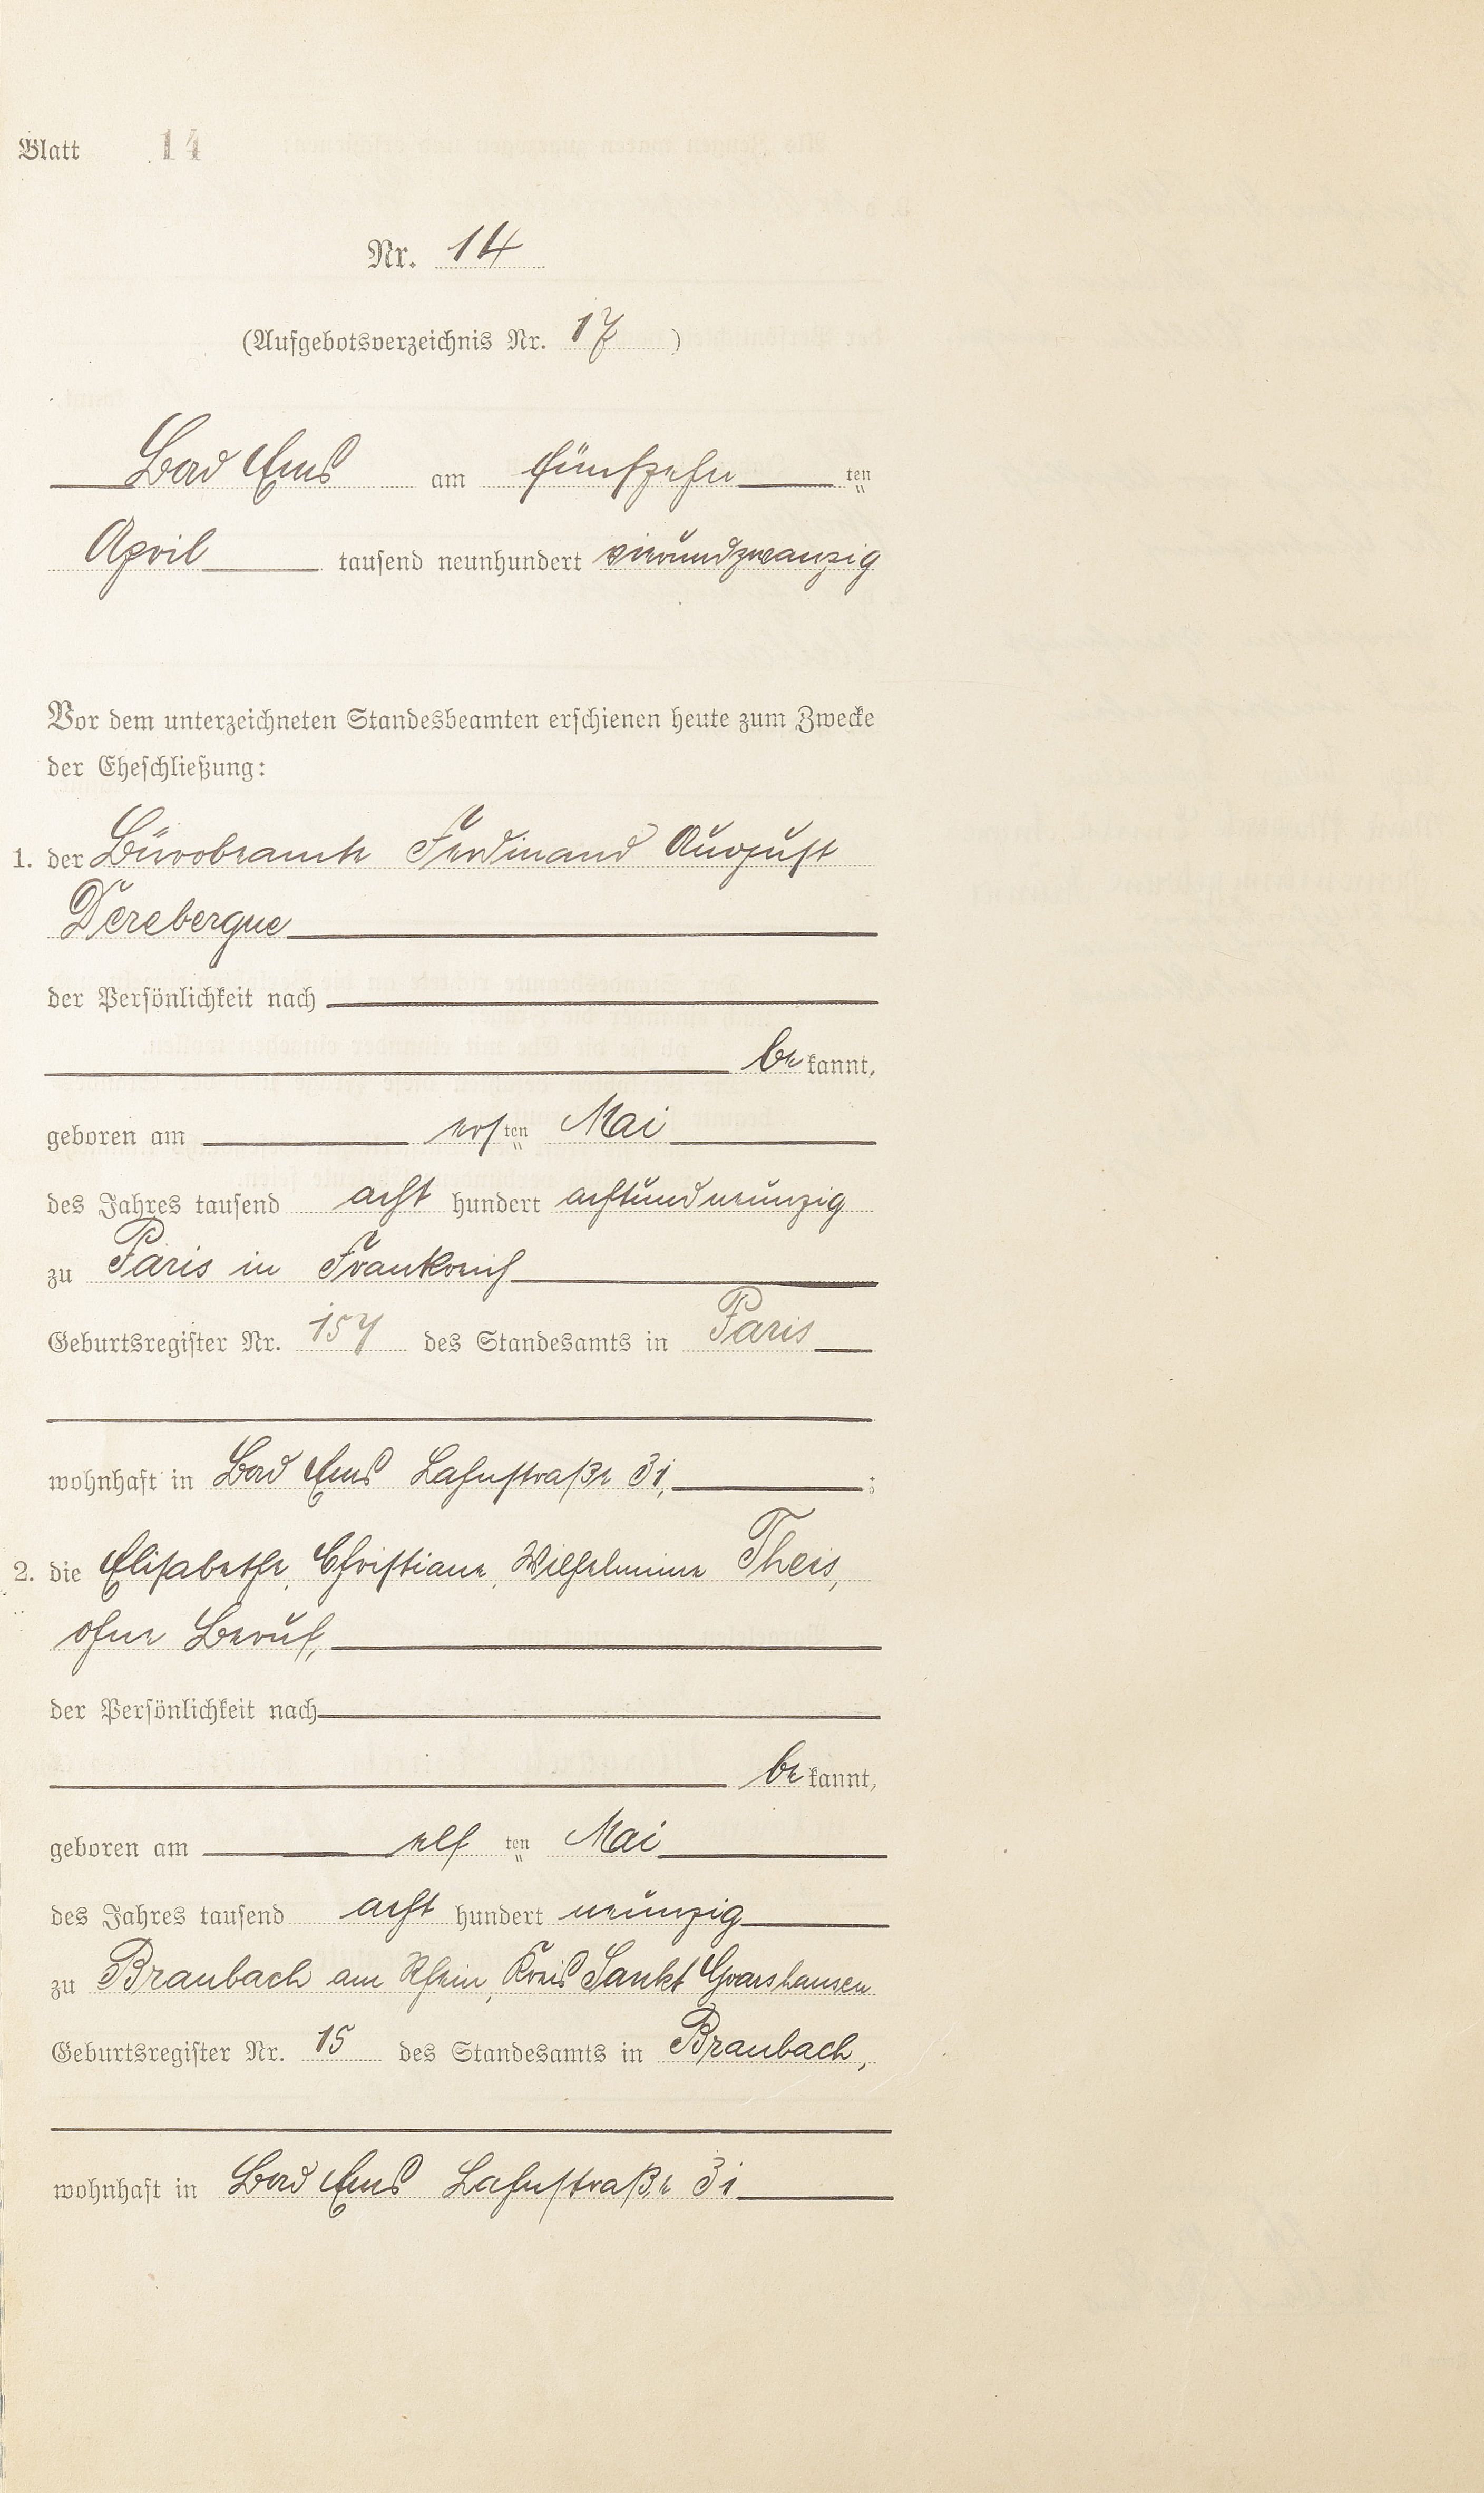 Blatt 14
Nr. 14
(Aufgebotsverzeichnis Nr. 17)
Bad Ems am fünfzehn ten
April tausend neunhundert vierundzwanzig
Vor dem unterzeichneten Standesbeamten erschienen heute zum Zwecke
der Eheschließung:
1. der Bürobeamte Ferdinand August
Derebergue
der Persönlichkeit nach
be kannt,
geboren am ers ten Mai
des Jahres tausend acht hundert achtundneunzig
zu Paris in Frankreich
Geburtsregister Nr. 157 des Standesamts in Paris
wohnhaft in Bad Ems Lahnstraße 31, ;
2. die Elisabethe, Christiane, Wilhelmine Theis,
ohne Beruf,
der Persönlichkeit nach
be kannt,
geboren am elf ten Mai
des Jahres tausend acht hundert neunzig
zu Braubach am Rhein, Kreis Sankt Goarshausen
Geburtsregister Nr. 15 des Standesamts in Braubach,
wohnhaft in Bad Ems Lahnstraße 31